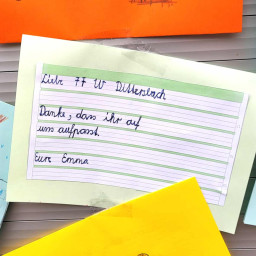 Liebe FF W Dittersbach
Danke, dass ihr auf
uns aufpasst.
Eure Emma